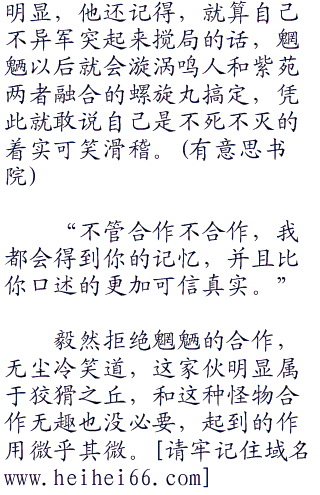 明显，他还记得，就算自己
不异军突起来搅局的话，魍
魉以后就会漩涡鸣人和紫苑
两者融合的螺旋丸搞定，凭
此就敢说自己是不死不灭的
着实可笑滑稽。(有意思书
院)
“不管合作不合作，我
都会得到你的记忆，并且比
你口述的更加可信真实。”
毅然拒绝魍魉的合作，
无尘冷笑道，这家伙明显属
于狡猾之丘，和这种怪物合
作无趣也没必要，起到的作
用微乎其微。[请牢记住域名
www.heihei66.com]